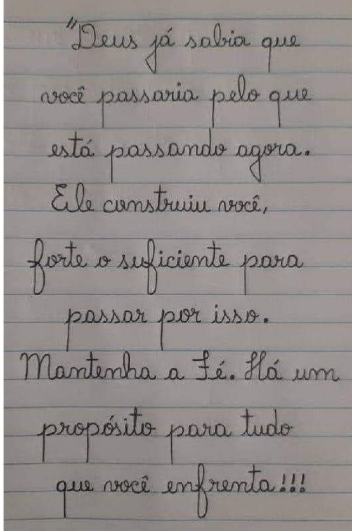 "Deus já sabia que
você passaria pelo que
está passando agora.
Ele construiu você,
forte o suficiente para
passar por isso.
Mantenha a Fé. Há um
propósito para tudo
que você enfrenta!!!